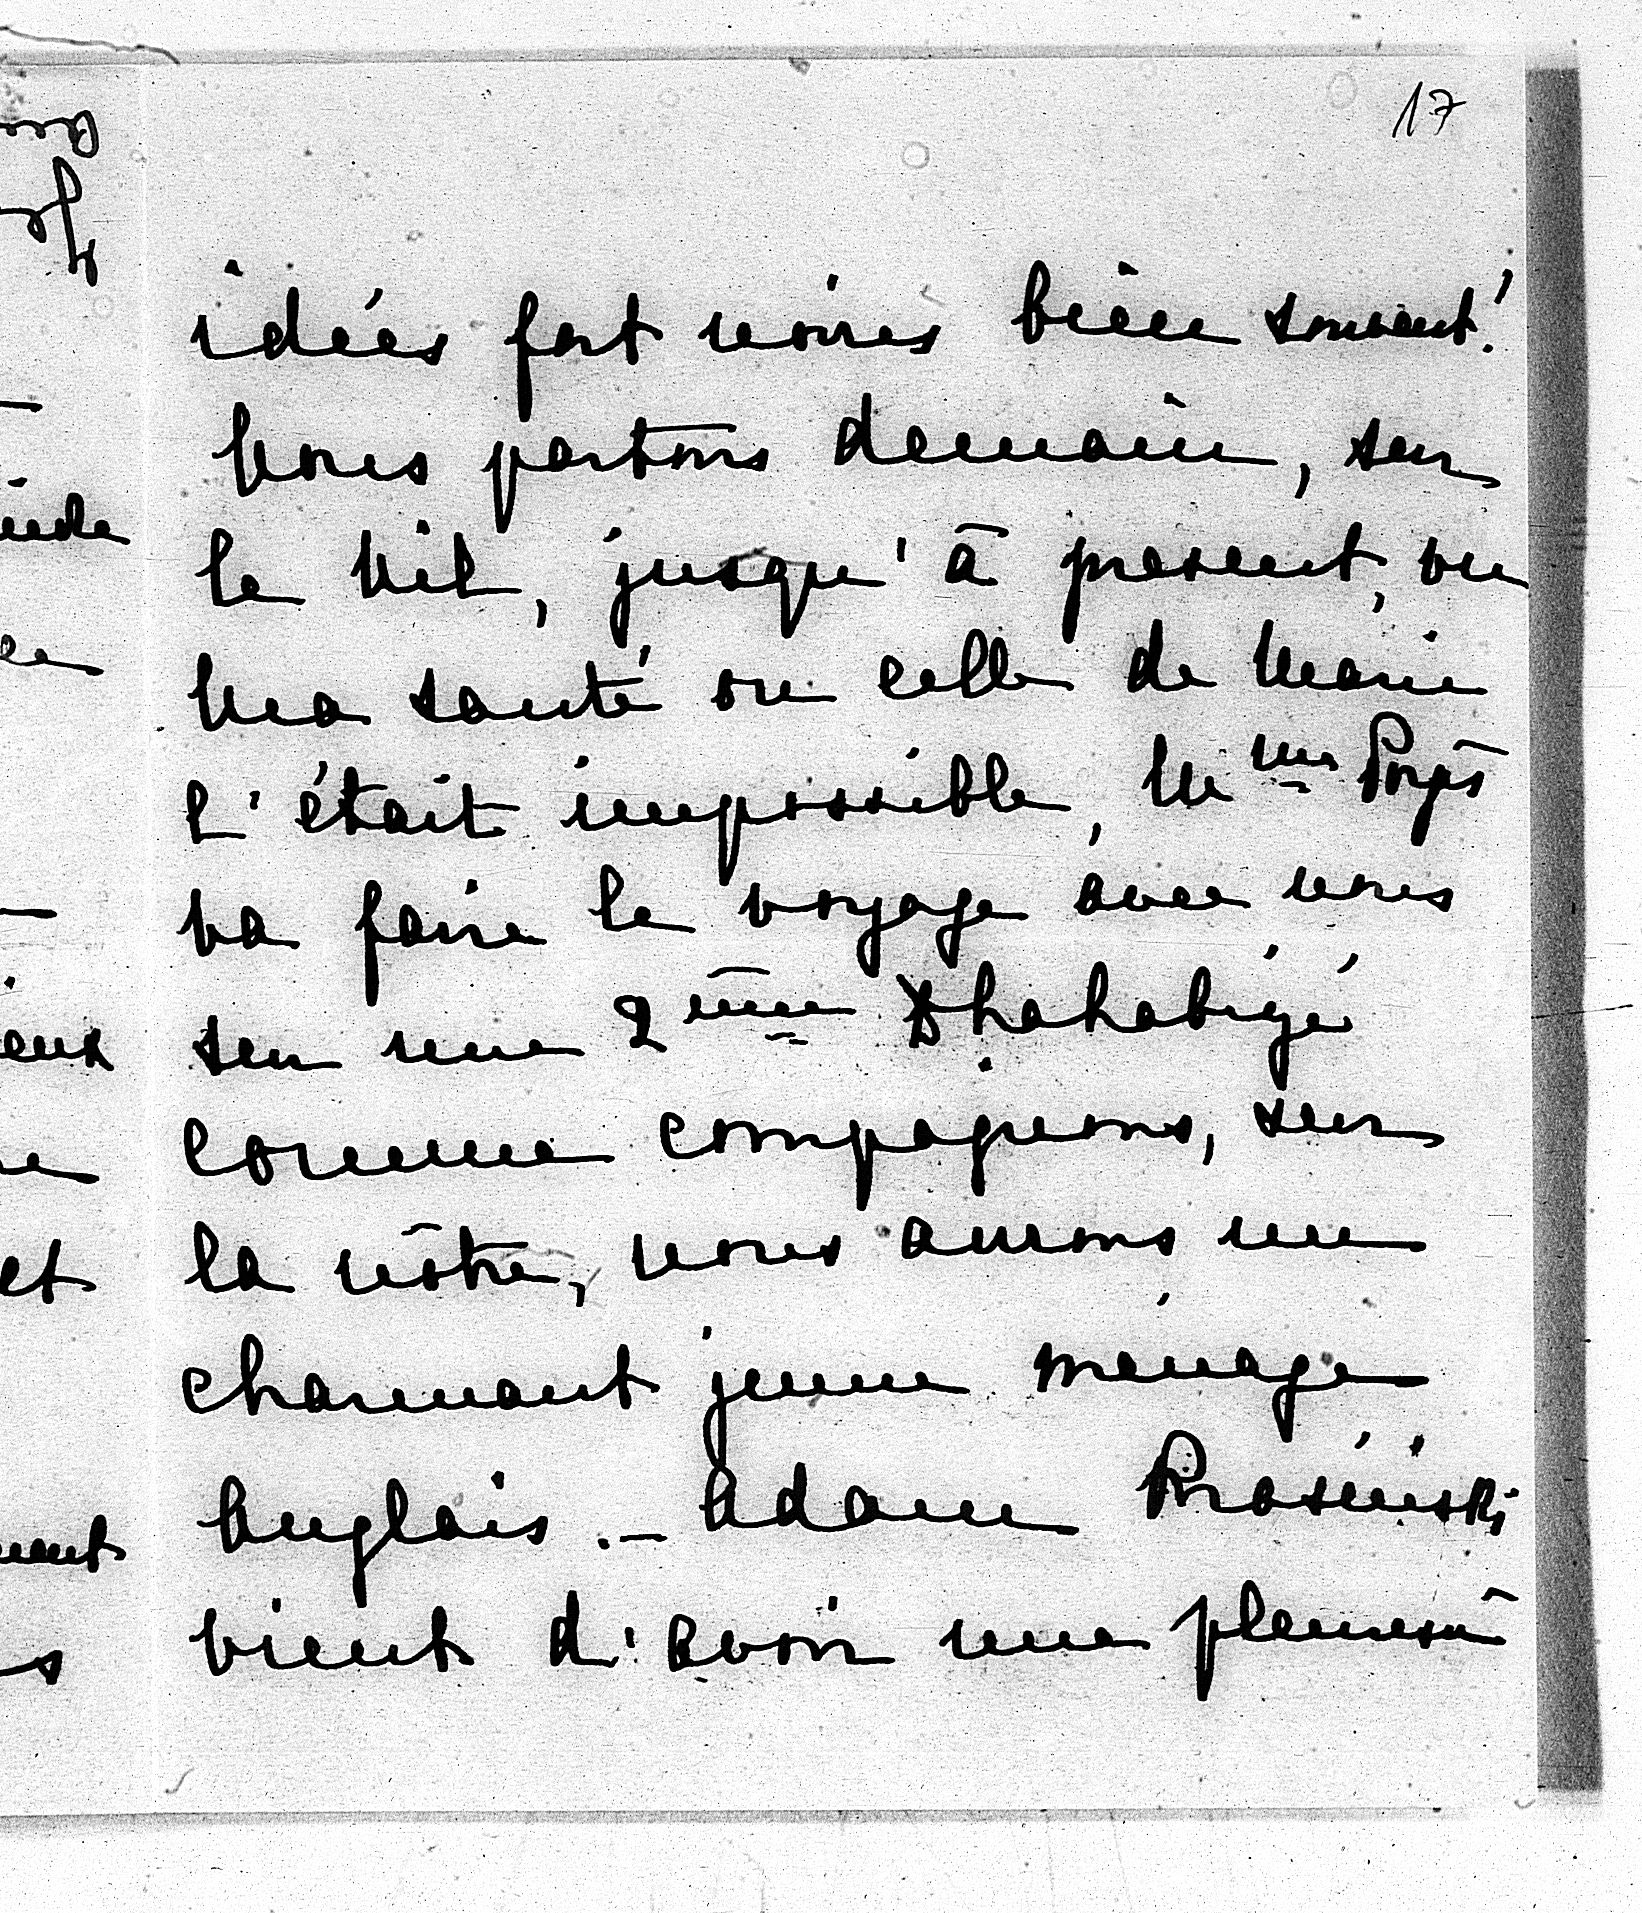 17
idées fort noires bien souvent!
Nous partons demain, sur
le Nil, jusqu'à présent, vu
ma santé ou celle de Marie
l'était impossible, Mme
va faire le voyage avec nous
sur une 2ème Dhahabiyé
comme compagnons, sur
la nôtre, nous aurons un
charmant jeune ménage
Anglais. – Adam
vient d'avoir une pleurésie